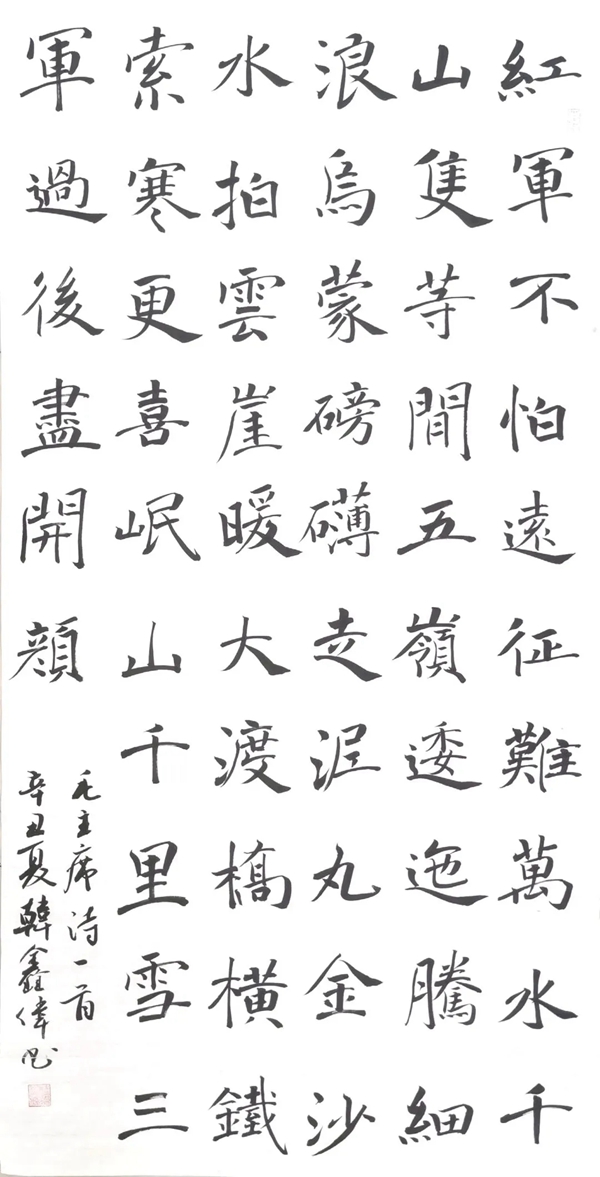 紅軍不怕遠征難萬水千
山隻等間五嶺逶迤騰細
浪烏蒙磅礴走泥丸金沙
水拍雲崖暖大渡橋橫鐵
索寒更喜岷山千里雪三
軍過後盡開顏
毛主席诗一首
辛丑夏韓鑫偉书